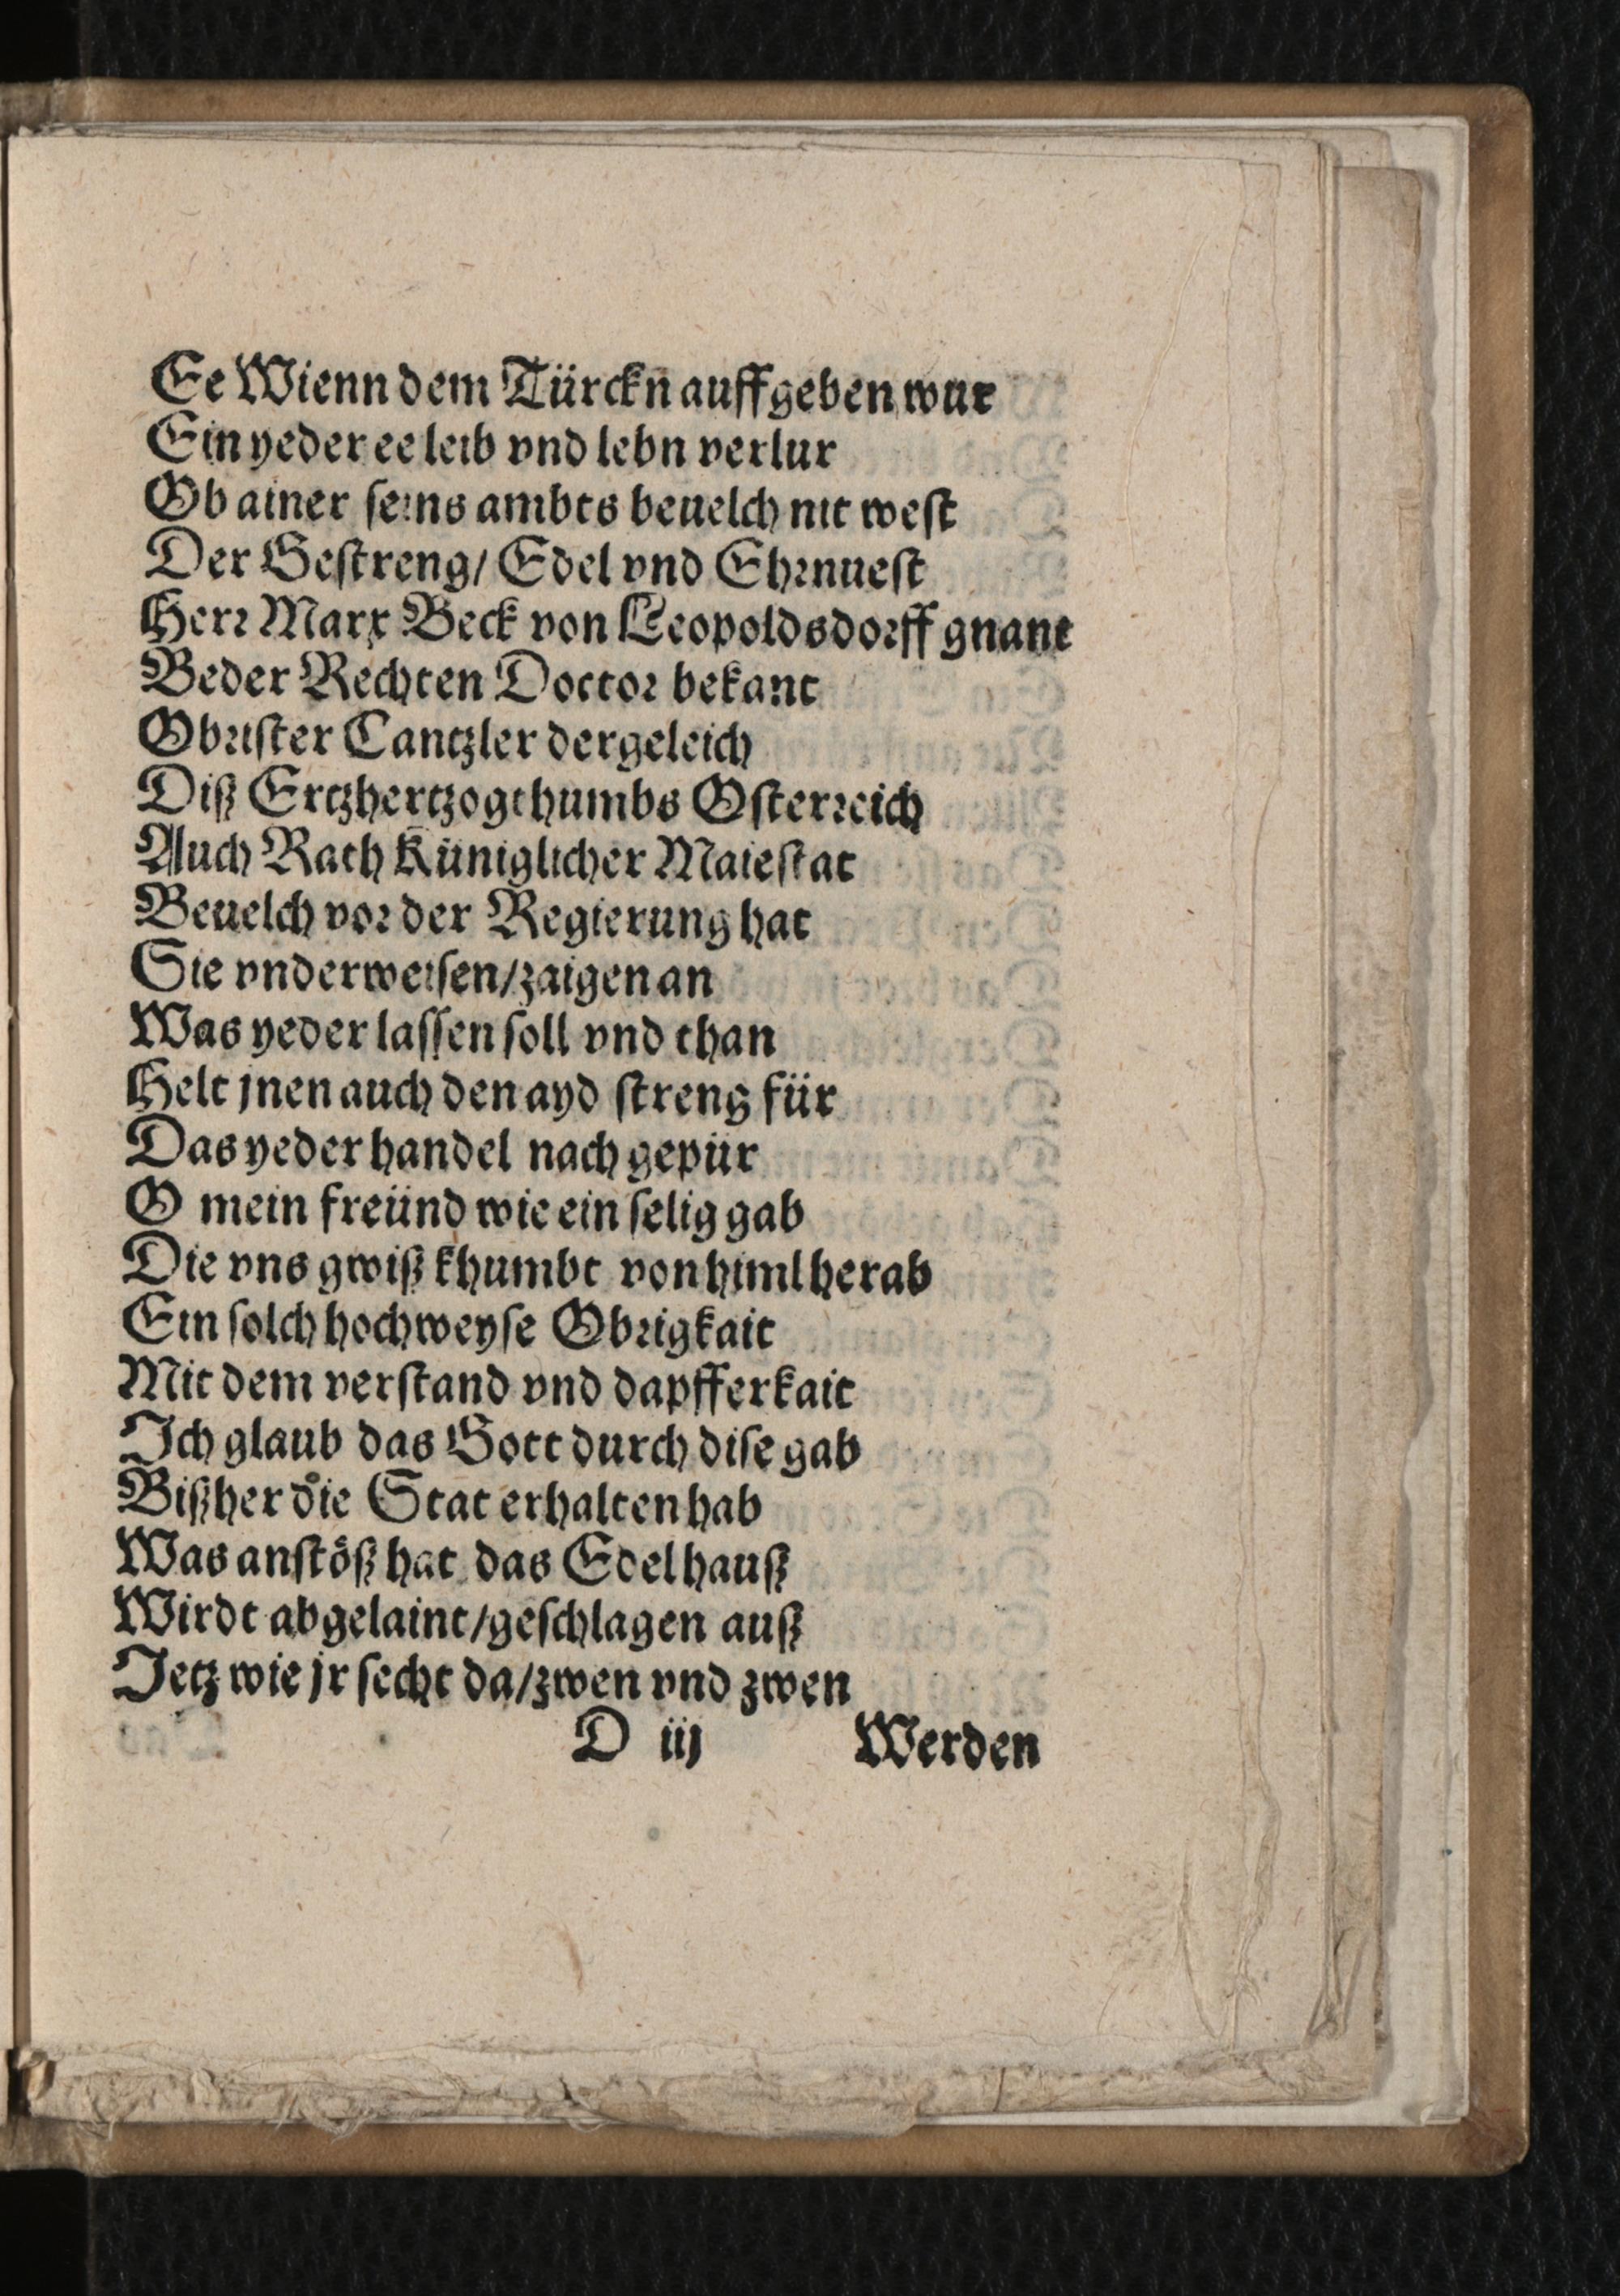 Ee Wienn dem Türckn auffgeben wur
Ein yeder ee leib vnd lebn verlur
Ob ainer seins ambts beuelch nit west
Der Gestreng/ Edel vnd Ehrnuest
Herr Marx Beck von Leopoldsdorff gnant
Beder Rechten Doctor bekant
Obrister Cantzler dergeleich
Diß Ertzhertzogthumbs Osterreich
Auch Rath Küniglicher Maiestat
Beuelch vor der Regierung hat
Sie vnderweisen/zaigen an
Was yeder lassen soll vnd than
Helt jnen auch den ayd streng für
Das yeder handel nach gepür
O mein freünd wie ein selig gab
Die vns gwiß khumbt von himl herab
Ein solch hochweyse Obrigkait
Mit dem verstand vnd dapfferkait
Ich glaub das Gott durch dise gab
Bißher die Stat erhalten hab
Was anstöß hat das Edel hauß
Wirdt abgelaint/geschlagen auß
Jetz wie jr secht da/zwen vnd zwen
D iij Werden